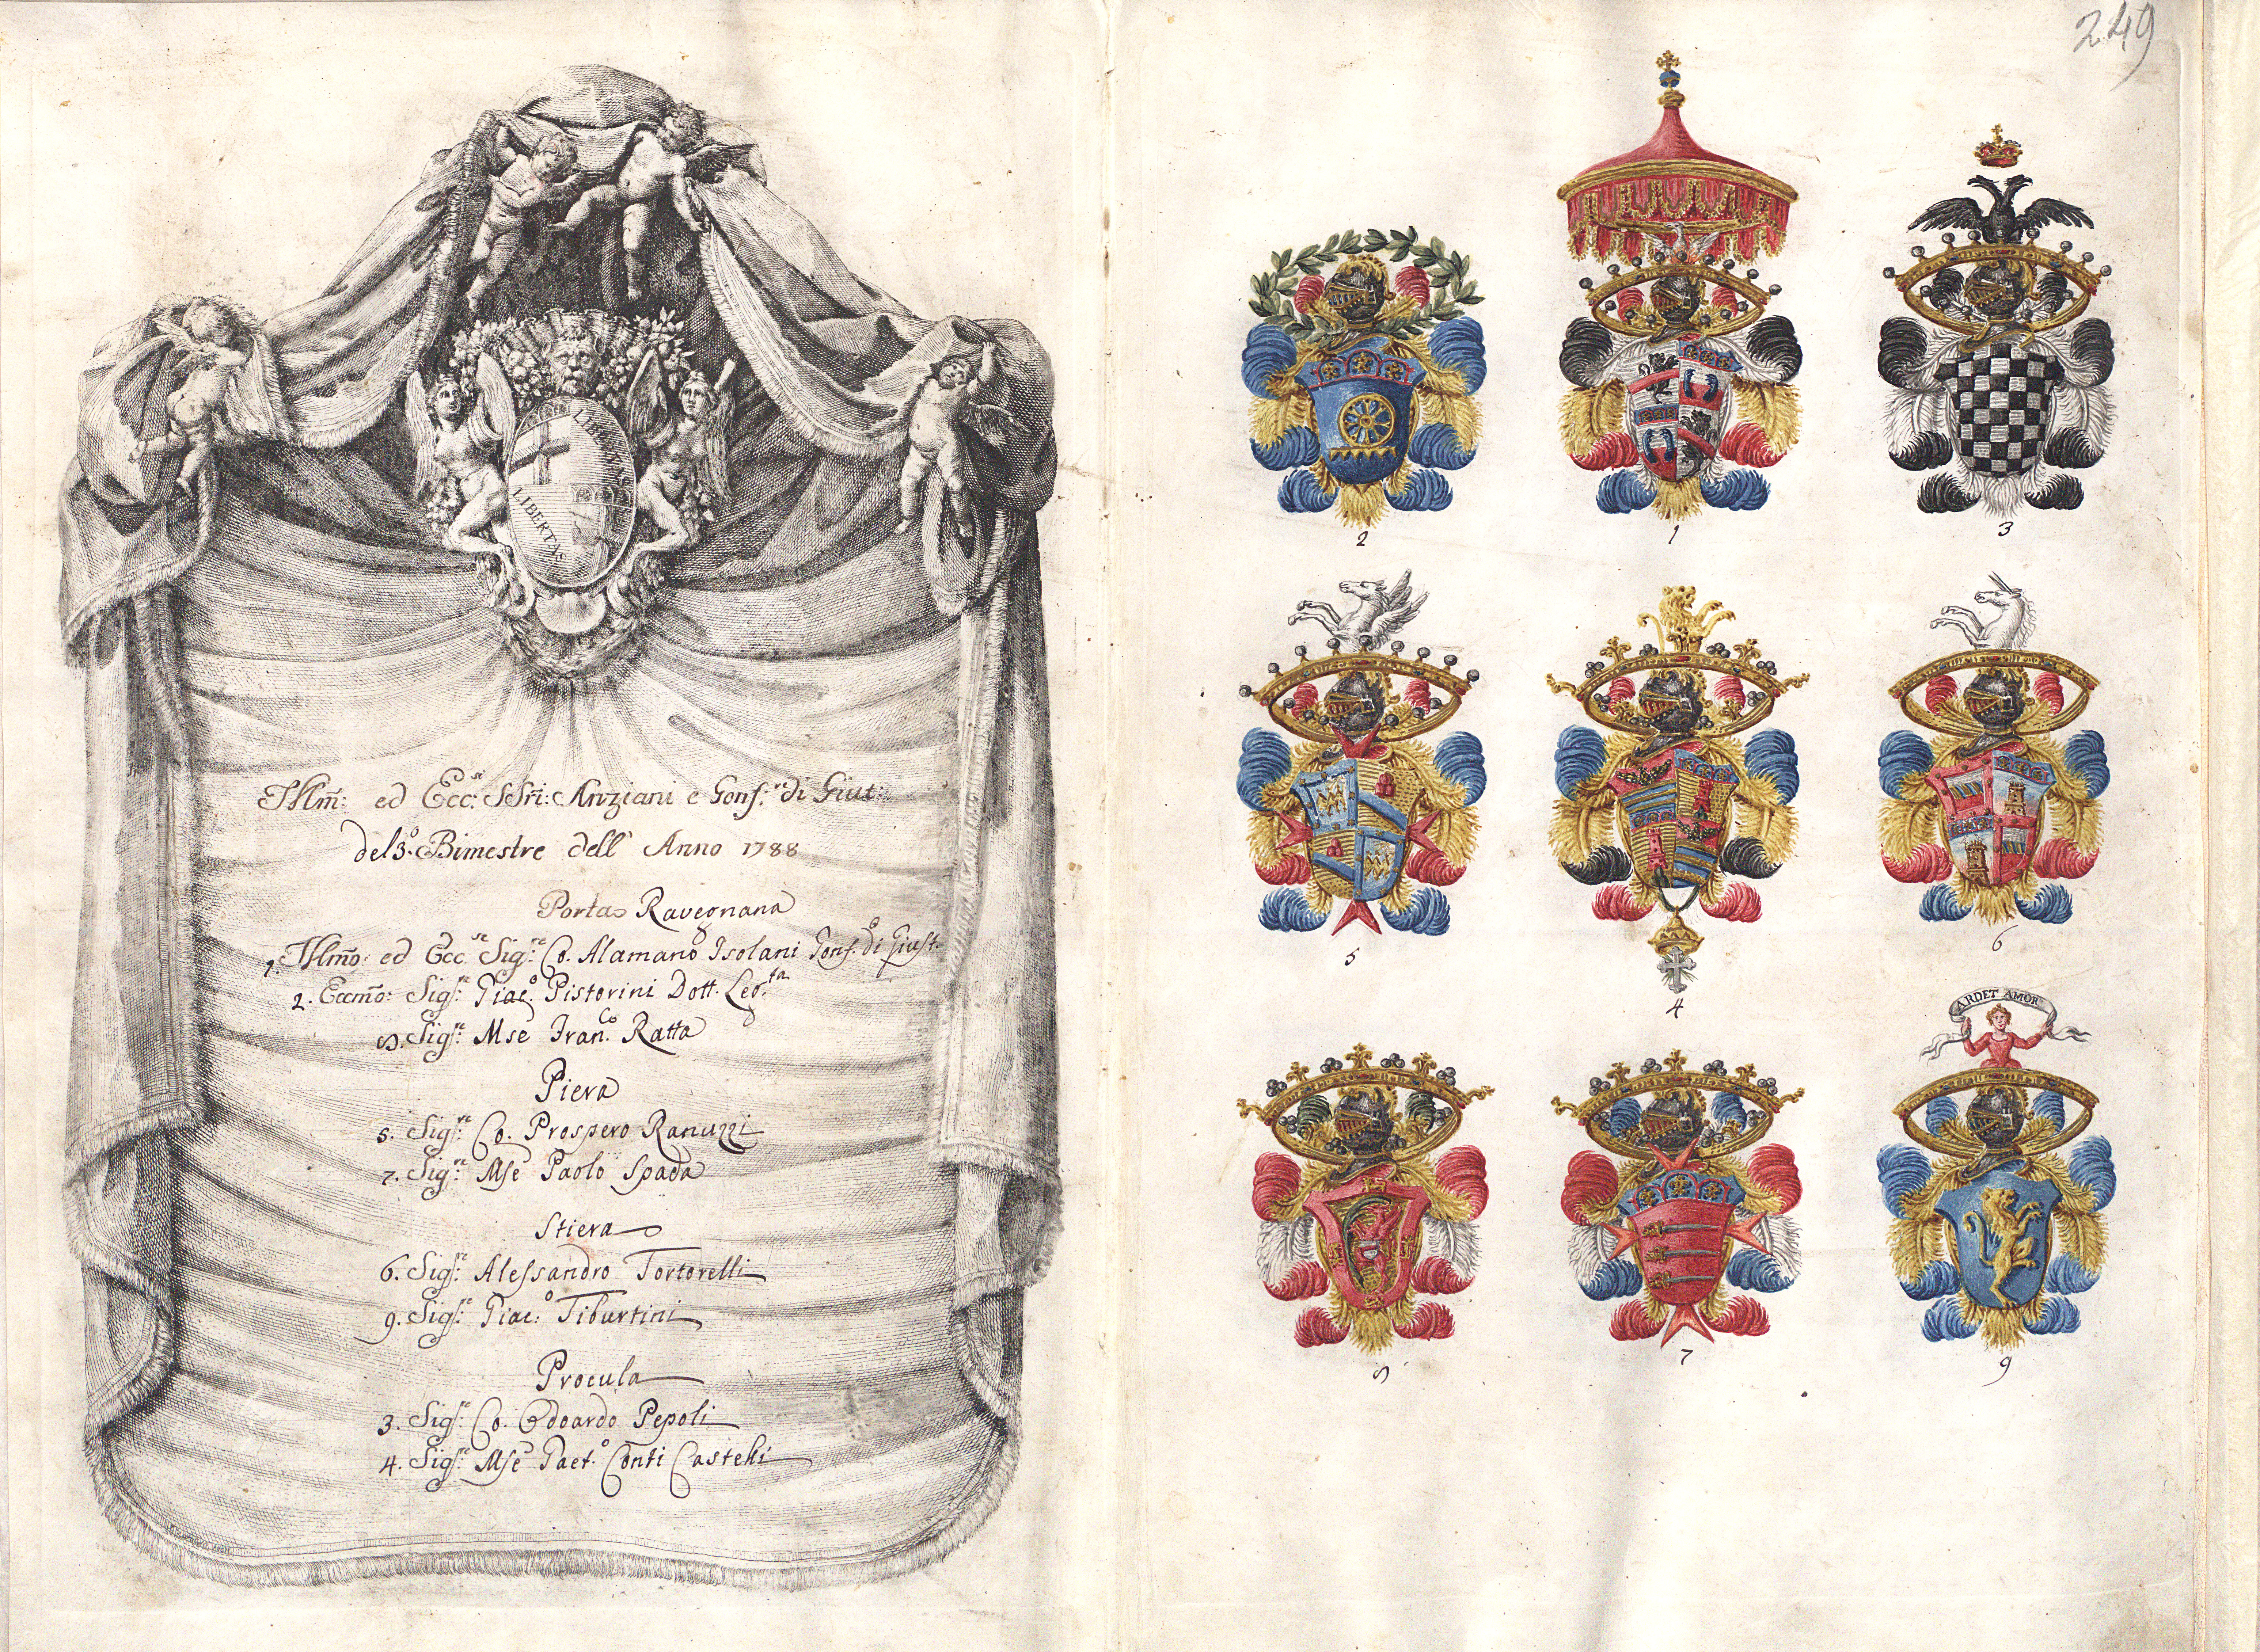 249
LIBERTAS
LIBERTAS
Jllm̃: ed Ecc:ᵐⁱ SSri: Anziani e Gonf:ʳᵉ di Giust:
del 3º. Bimestre dell' Anno 1788
Porta Ravegnana
1. Jllm̃o: ed Ecc.ᵐᵒ Sigʳᵉ: Co. Alamano Isolani Gonf. di Giust.
2. Eccm̃o: Sigʳᵉ: Giacº. Pistorini Dott. Leg.ᵗᵃ
8. Sigʳᵉ: Mse Franᶜᵒ. Ratta
Piera
5. Sigʳᵉ: Co. Prospero Ranuzzi
7. Sigʳᵉ: Mse Paolo Spada
Stiera
6. Sigʳᵉ: Alessandro Tortorelli
9. Sigʳᵉ: Giac:º Tiburtini
Procula
3. Sigʳᵉ: Co. Edoardo Pepoli
4. Sigʳᵉ: Mse Gaet.º Conti Castelli
2
1
3
5
4
6
ARDET AMOR
8
7
9